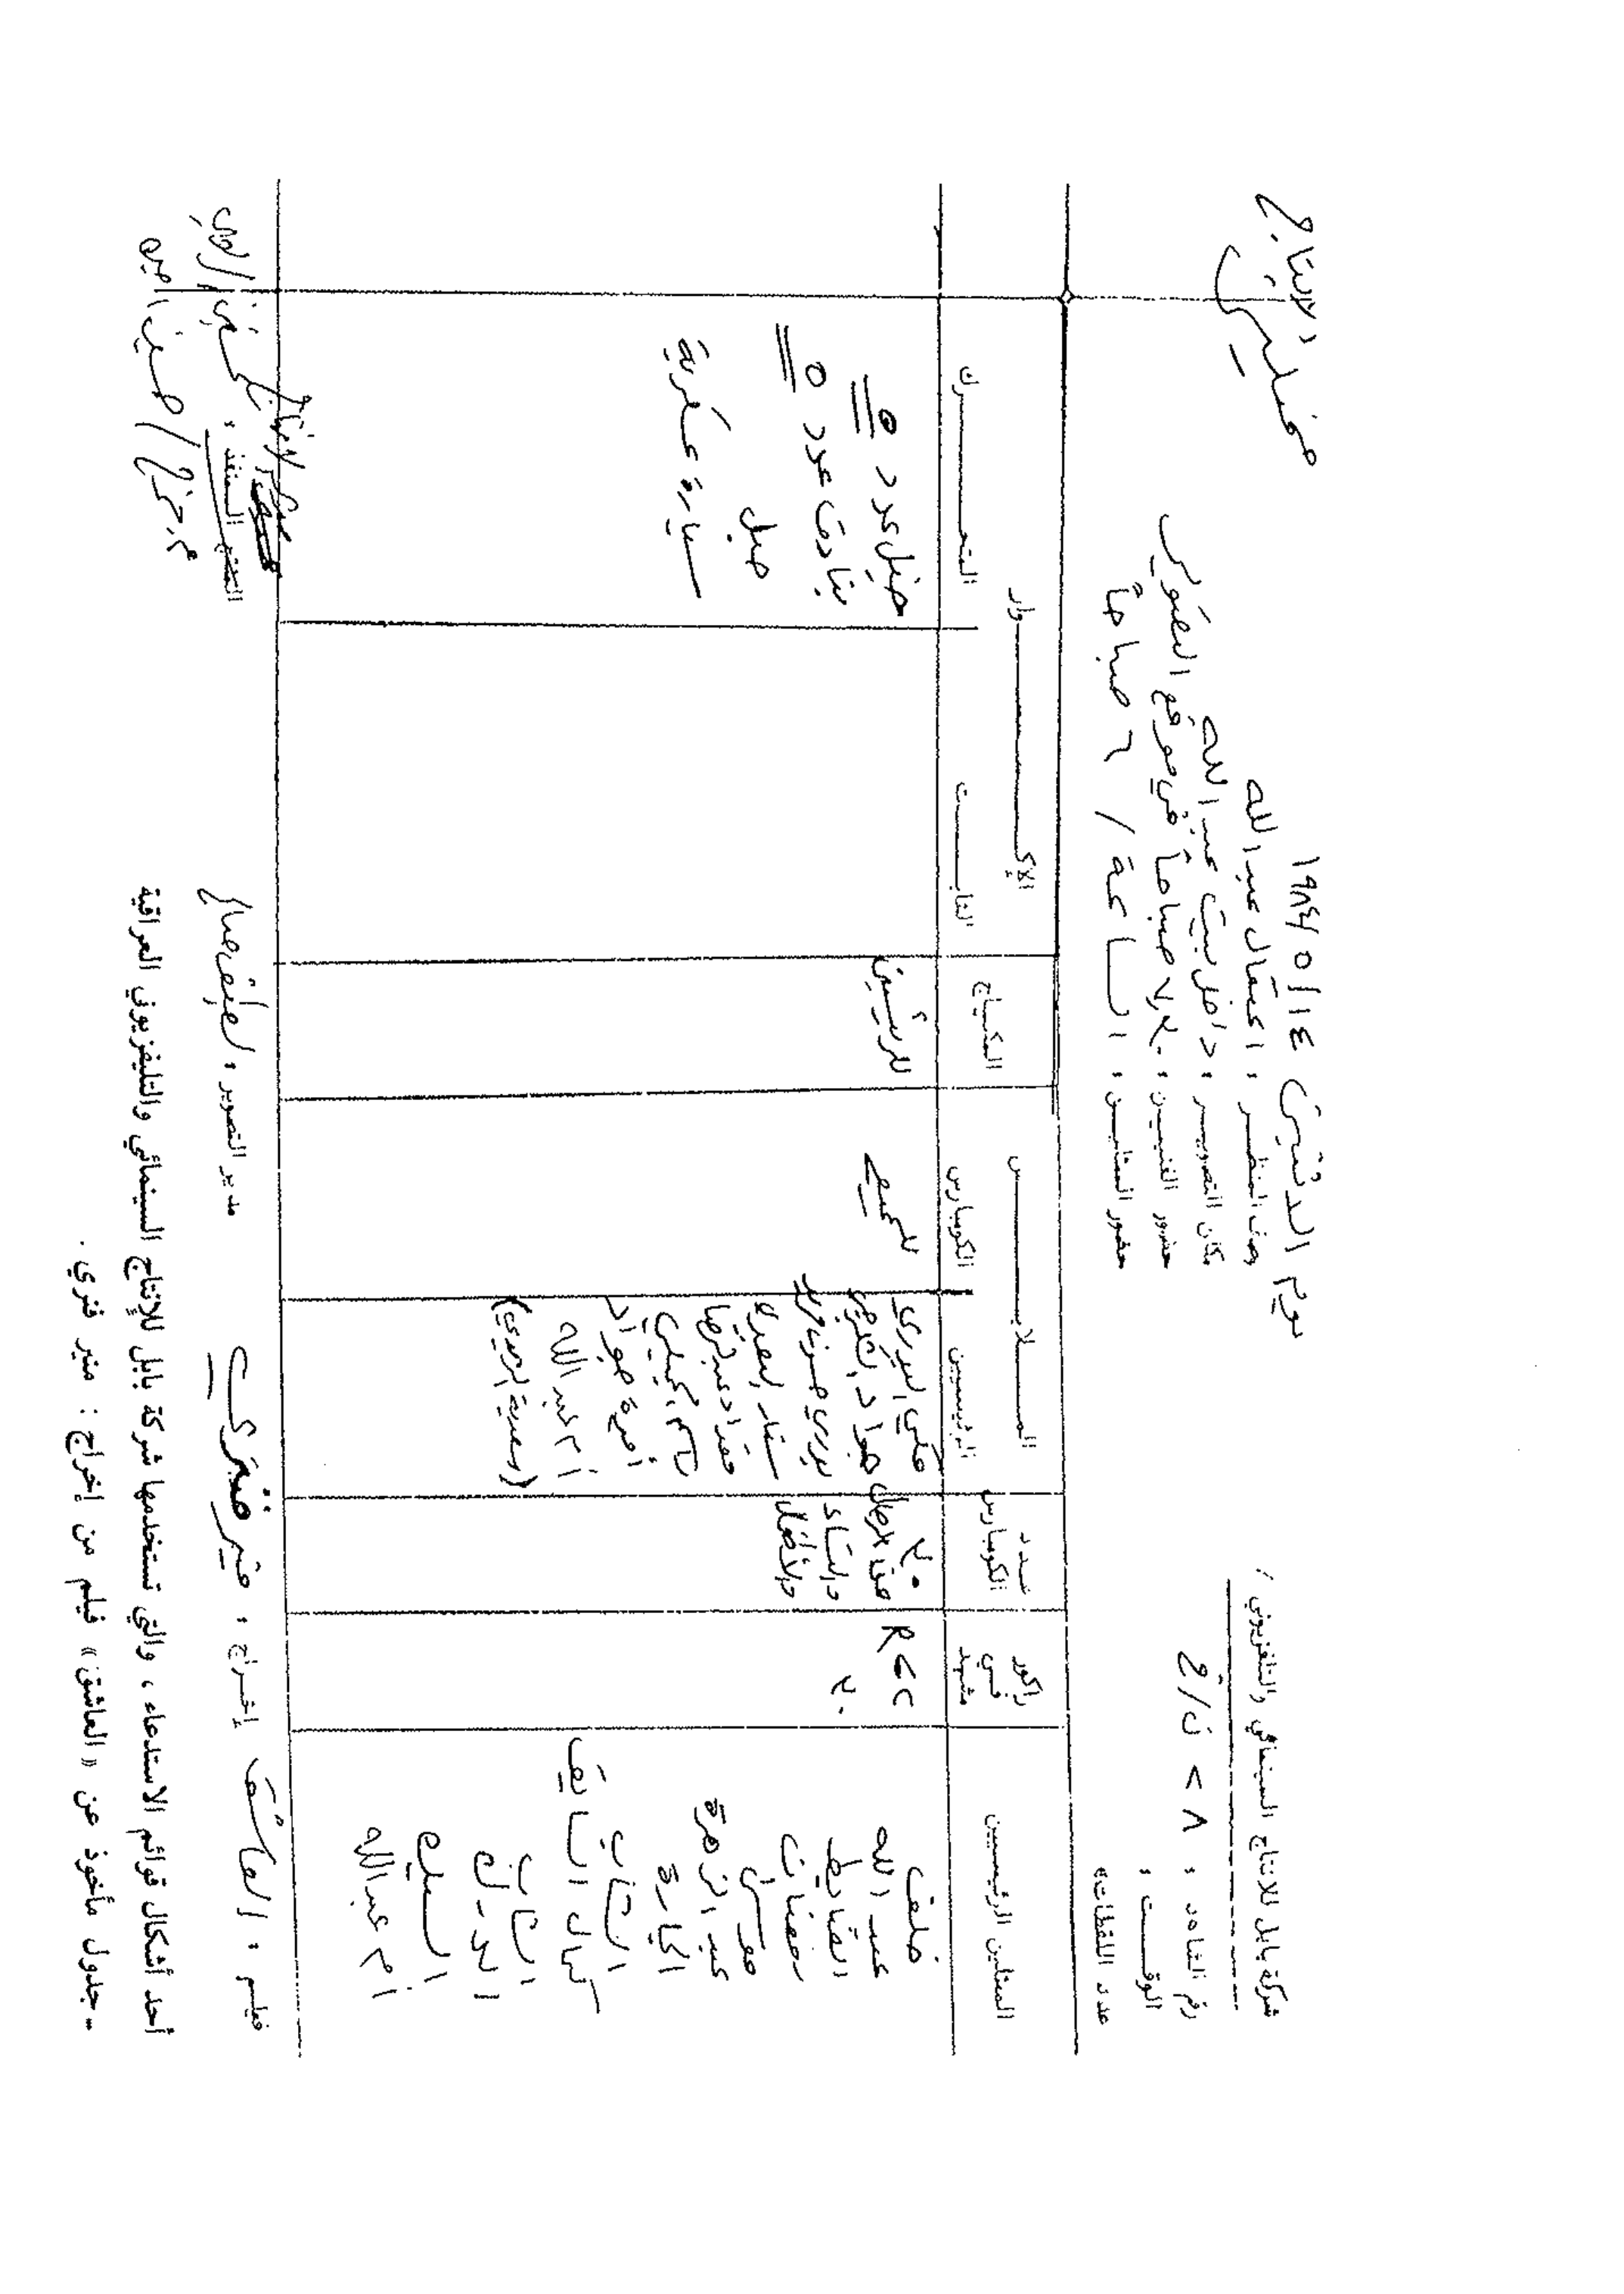 شركة بابل للانتاج السينمائي والتلفزيوني /
رقم المشاهد : ٢٨ ن/خ
الوقت :
عدد اللقطات :
يوم الاثنين ١٩٨٤/٥/١٤
وصف المنظر : اعتقال عبد الله
مكان التصوير : داخل بيت عبد الله
حضور الفنيين : صباحاً في موقع التصوير
حضور الممثلين : الساعة / ٦ صباحاً
الممثلين الرئيسيين
راكور في مشهد
عدد الكومبارس
الملابس
الرئيسيين
الكومبارس
المكياج
الاكسسوار
الثابت
المتحرك
خلف
عبد الله
الضابط
رمضان
عبد الزهرة
الجارة
الشاب
الشاب
أم عبد الله
٣٠
٣٠ من الرجال
والنساء
والأطفال
ستار البصري
أميرة جواد
أم عبد الله
للجميع
للرئيسيين
عدد ٥
بنادق عدد ٥
حبل
سيارة عسكرية
فيلم : العاشق
إخراج : منير فنري
مدير التصوير : لطيف صالح
المنتج المنفذ :
م. مخرج / حسين امين
أحد أشكال قوائم الاستدعاء ، والتي تستخدمها شركة بابل للإنتاج السينمائي والتليفزيوني العراقية
- جدول مأخوذ عن « العاشق » فيلم من إخراج : منير فنري .